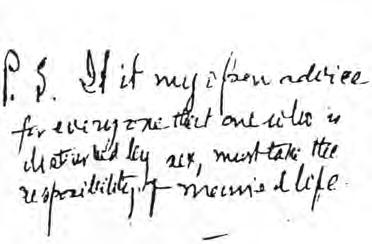 P. S. It it my open advice
for everyone that one who is
disturbed by sex, must take the
resposibility of married life.